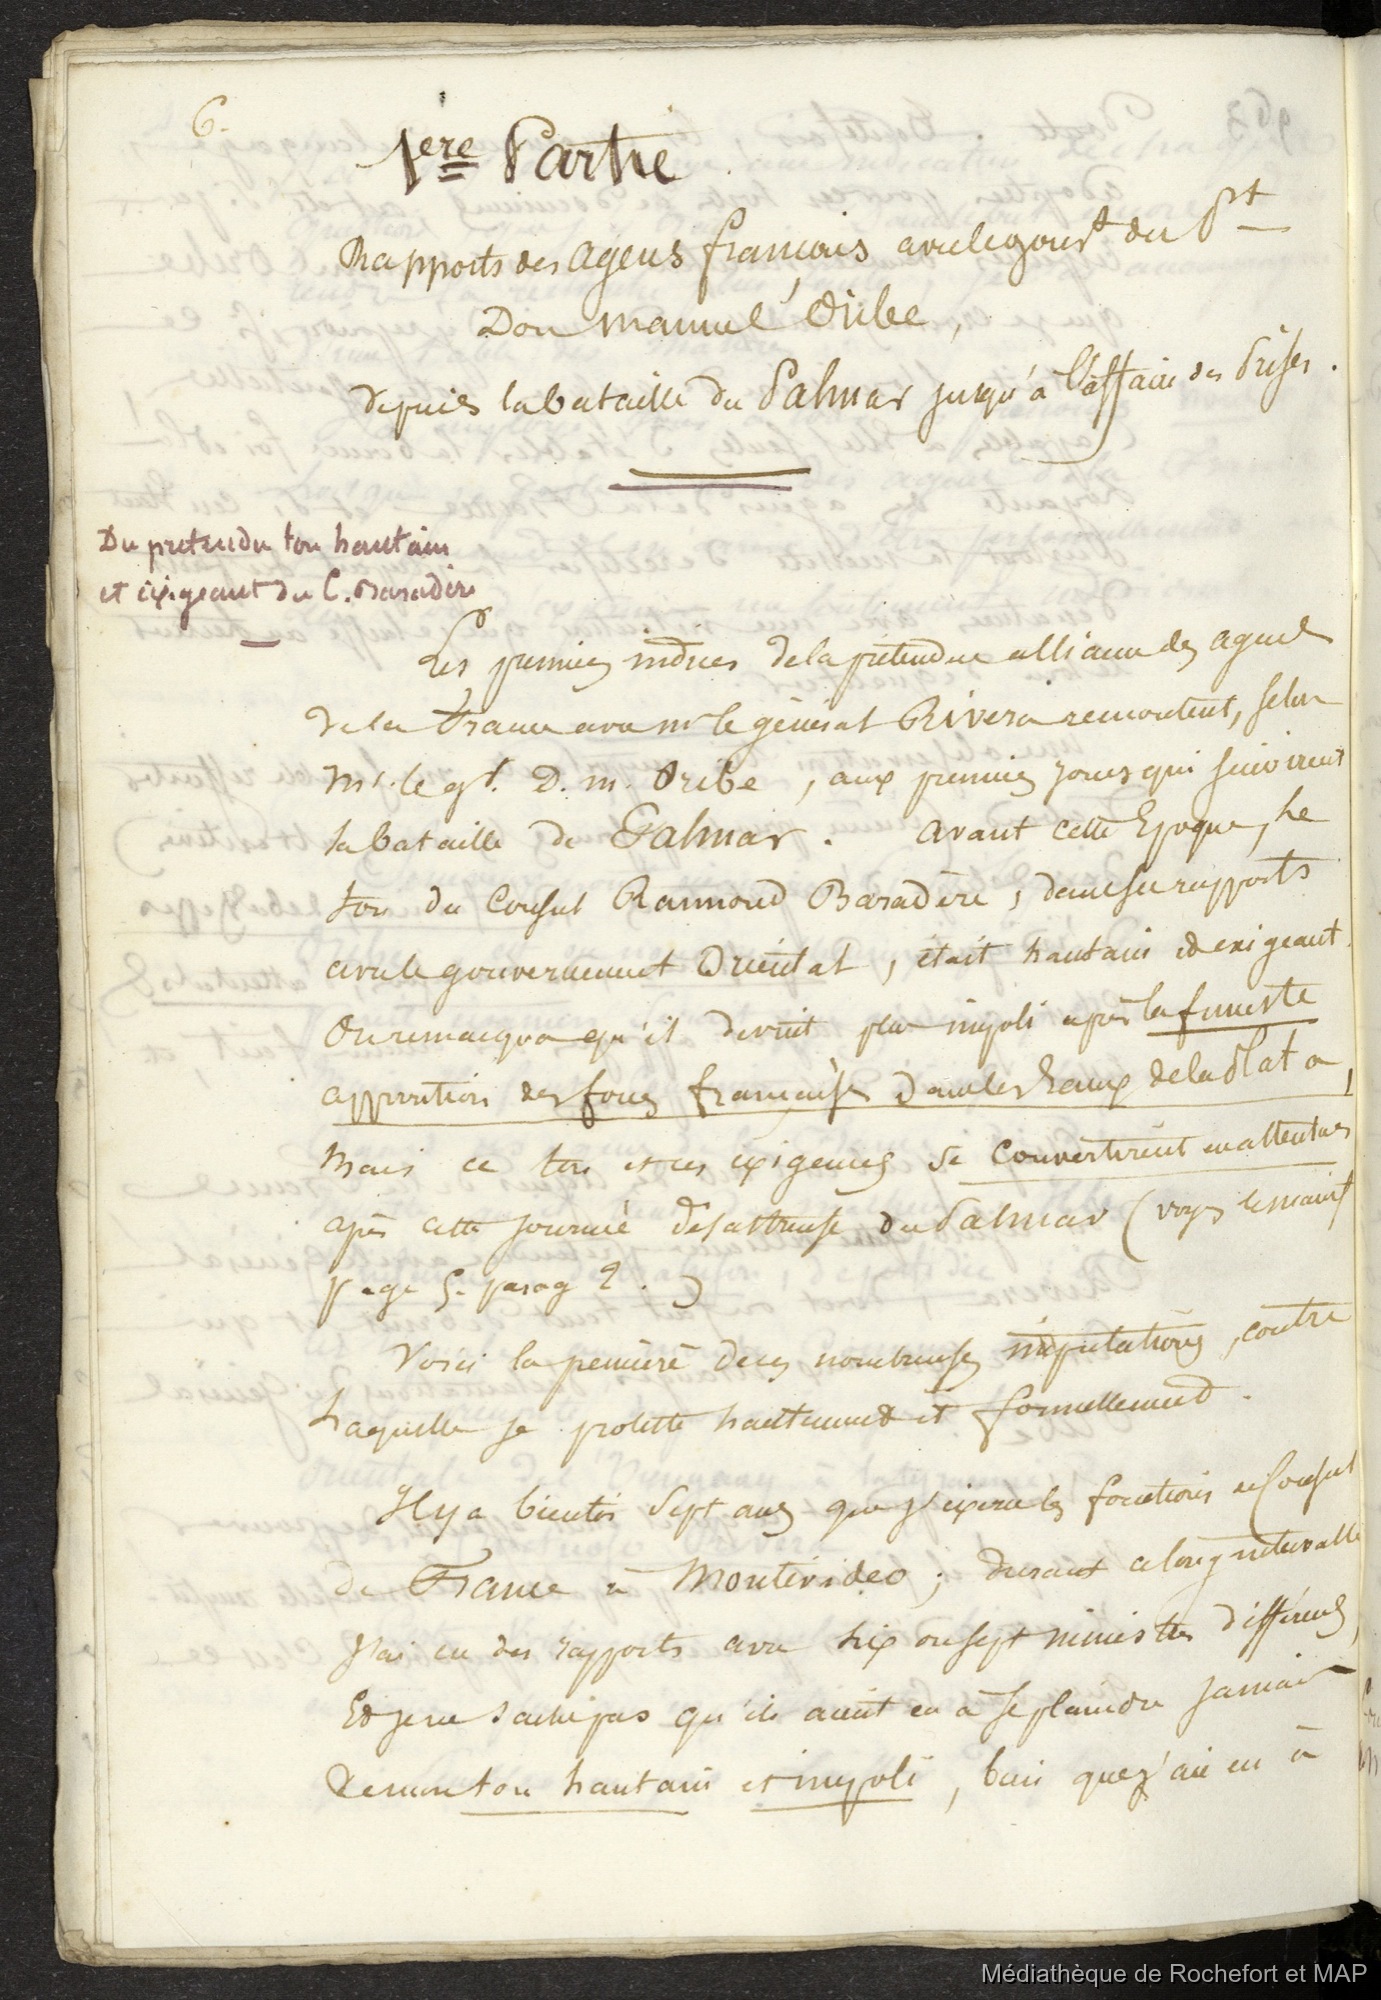 6.
1ere Partie
Rapports des agens français avec le gouvt du Pt
Don Manuel Oribe,
depuis la bataille du Palmar jusqu'à l'affaire des Prises.
Du pretendu ton hautain
et exigeant du C. Baradère
Les premiers indices de la prétendue alliance des agens
de la France avec Mr le général Rivera remontent, selon
Mr. le gl. D. M. Oribe, aux premiers jours qui suivirent
la bataille de Palmar. Avant cette Epoque, le
ton du Consul Raimond Baradère, dans ses rapports
avec le gouvernement Oriental, était hautain et exigeant.
On remarqua qu'il devint plus impoli après la funeste
apparition des forces françaises dans les Eaux de la Plata,
Mais ce ton et ces exigences se convertirent en attentats
après cette journée désastreuse du Palmar (voyez le manift
page 5. parag 2.)
Voici la première de ces nombreuses imputations, contre
laquelle je proteste hautement et formellement.
Il y a bientôt sept ans que j'exerce les fonctions de Consul
de France à Montévideo; durant ce long intervalle
j'ai eu des rapports avec six ou sept ministres différens,
Et je ne sache pas qu'ils aient eu à se plaindre jamais
de mon ton hautain et impoli, bien que j'aie eu à
Médiathèque de Rochefort et MAP